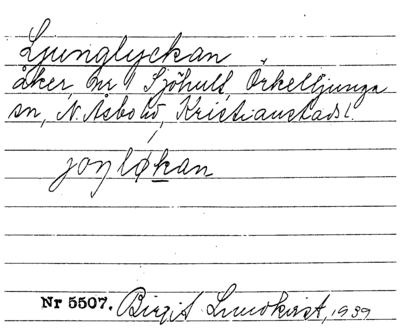 Ljunglyckan
åker, nr 1 Sjöhult, Örkelljunga
sn, N. Åsbo hd, Kristianstads l.
joŋløkan
Nr 5507. Birgit Lundkvist, 1939